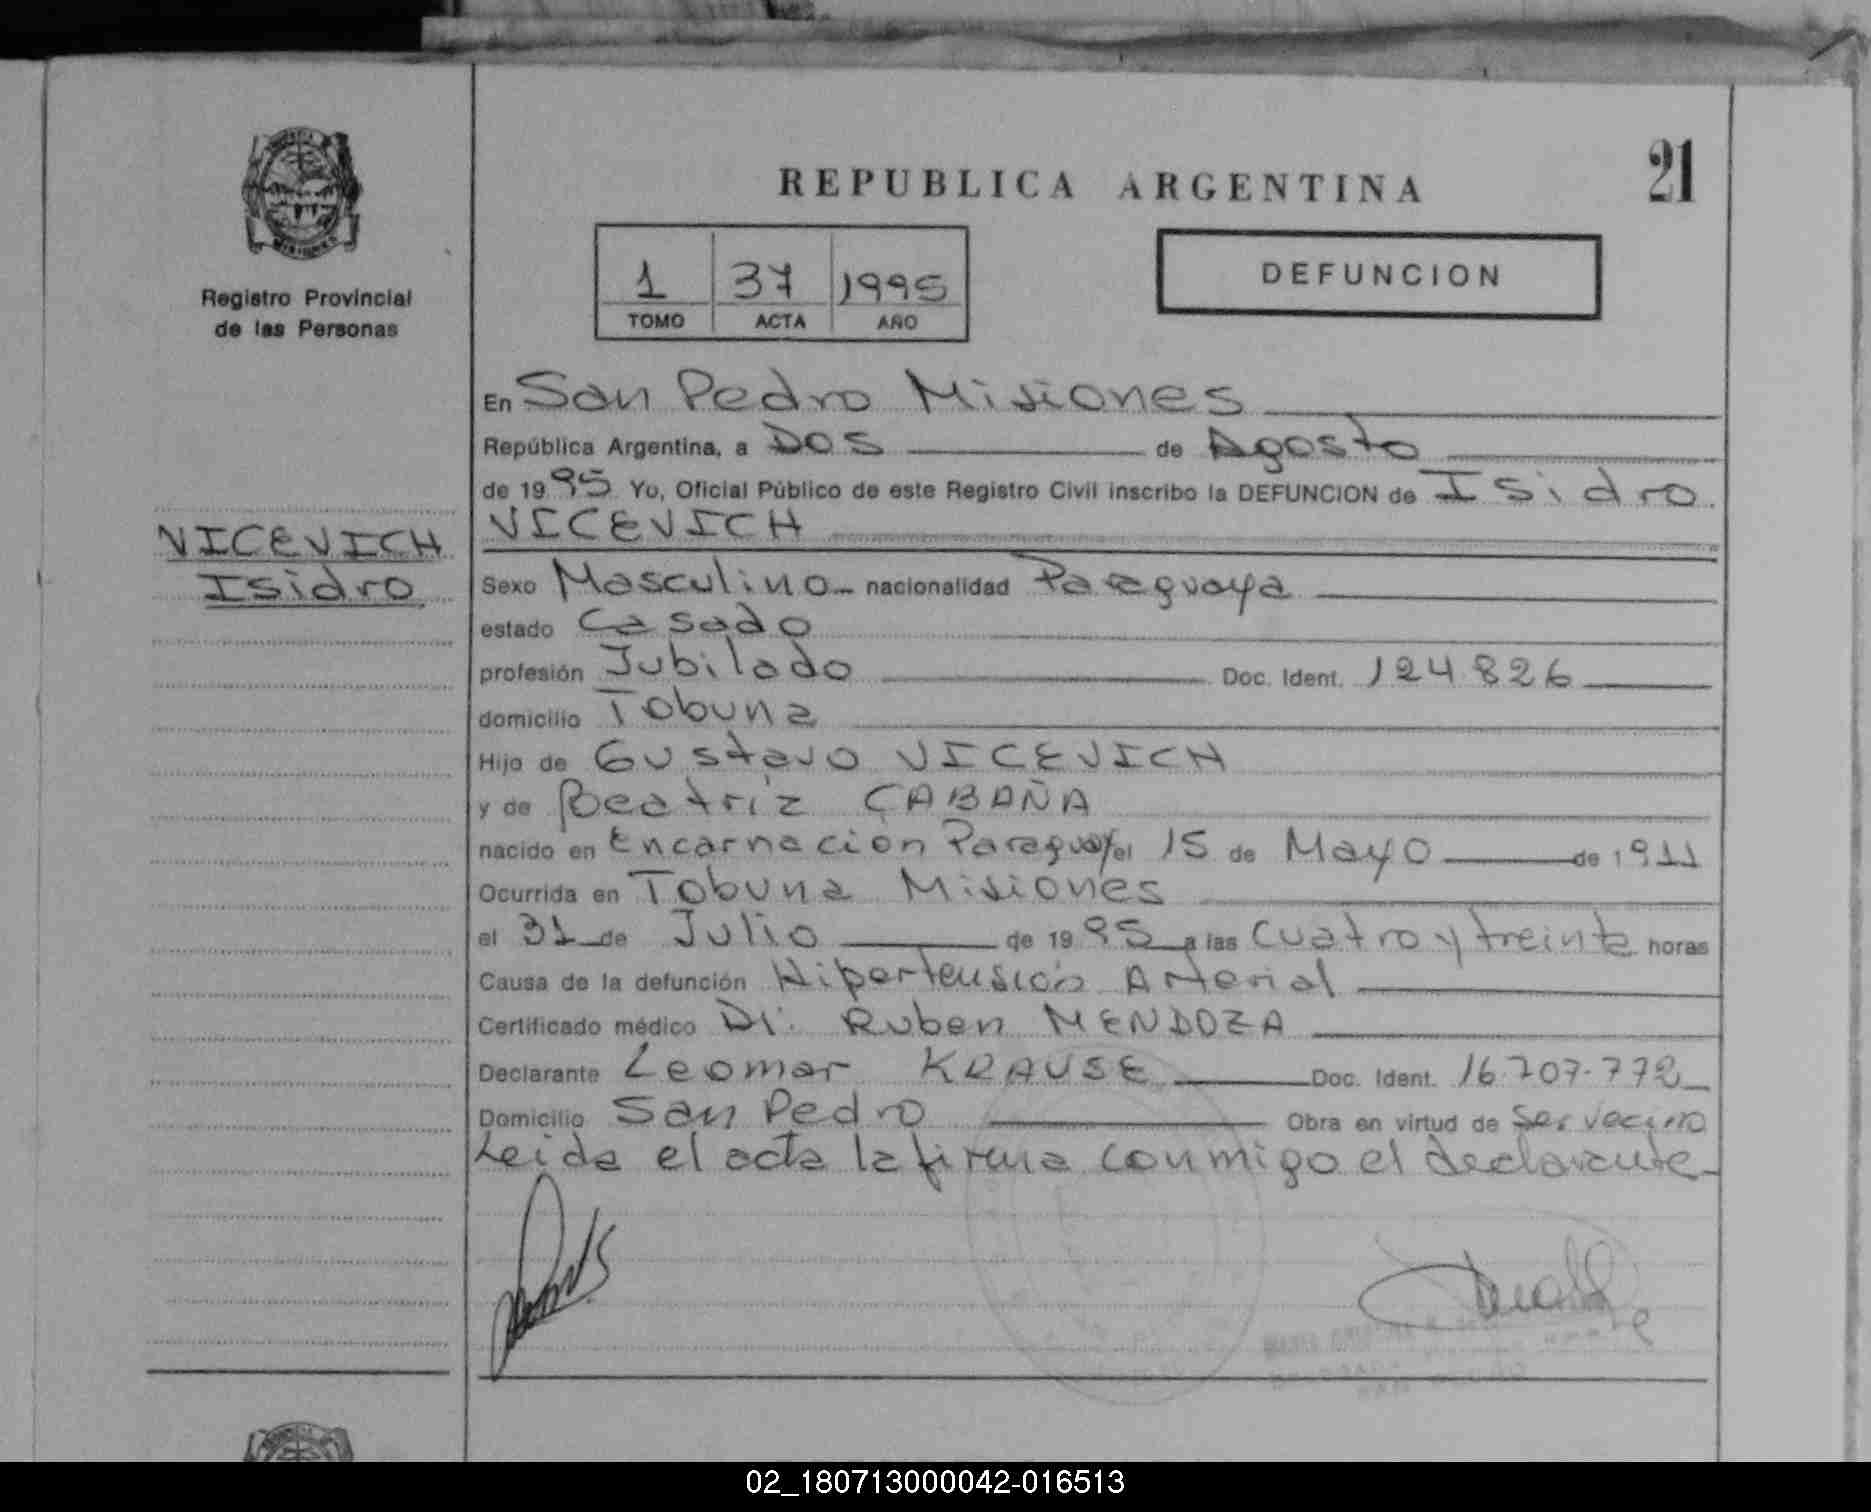 REPUBLICA ARGENTINA
21
Registro Provincial
de las Personas
1 37 1995
TOMO ACTA AÑO
DEFUNCION
VICEVICH
Isidro
En San Pedro Misiones
República Argentina, a Dos de Agosto
de 1995 Yo, Oficial Público de este Registro Civil inscribo la DEFUNCION de Isidro
VICEVICH
Sexo Masculino nacionalidad Paraguaya
estado Casado
profesión Jubilado Doc. Ident. 124.826
domicilio Tobuna
Hijo de Gustavo VICEVICH
y de Beatriz CABAÑA
nacido en Encarnacion Paraguay el 15 de Mayo de 1911
Ocurrida en Tobuna Misiones
el 31 de Julio de 1995 a las Cuatro y treinta horas
Causa de la defunción Hipertensión Arterial
Certificado médico Dr. Ruben MENDOZA
Declarante Leomar KRAUSE Doc. Ident. 16.707.772
Domicilio San Pedro Obra en virtud de Ser vecino
Leida el acta la firma conmigo el declarante
02_180713000042-016513